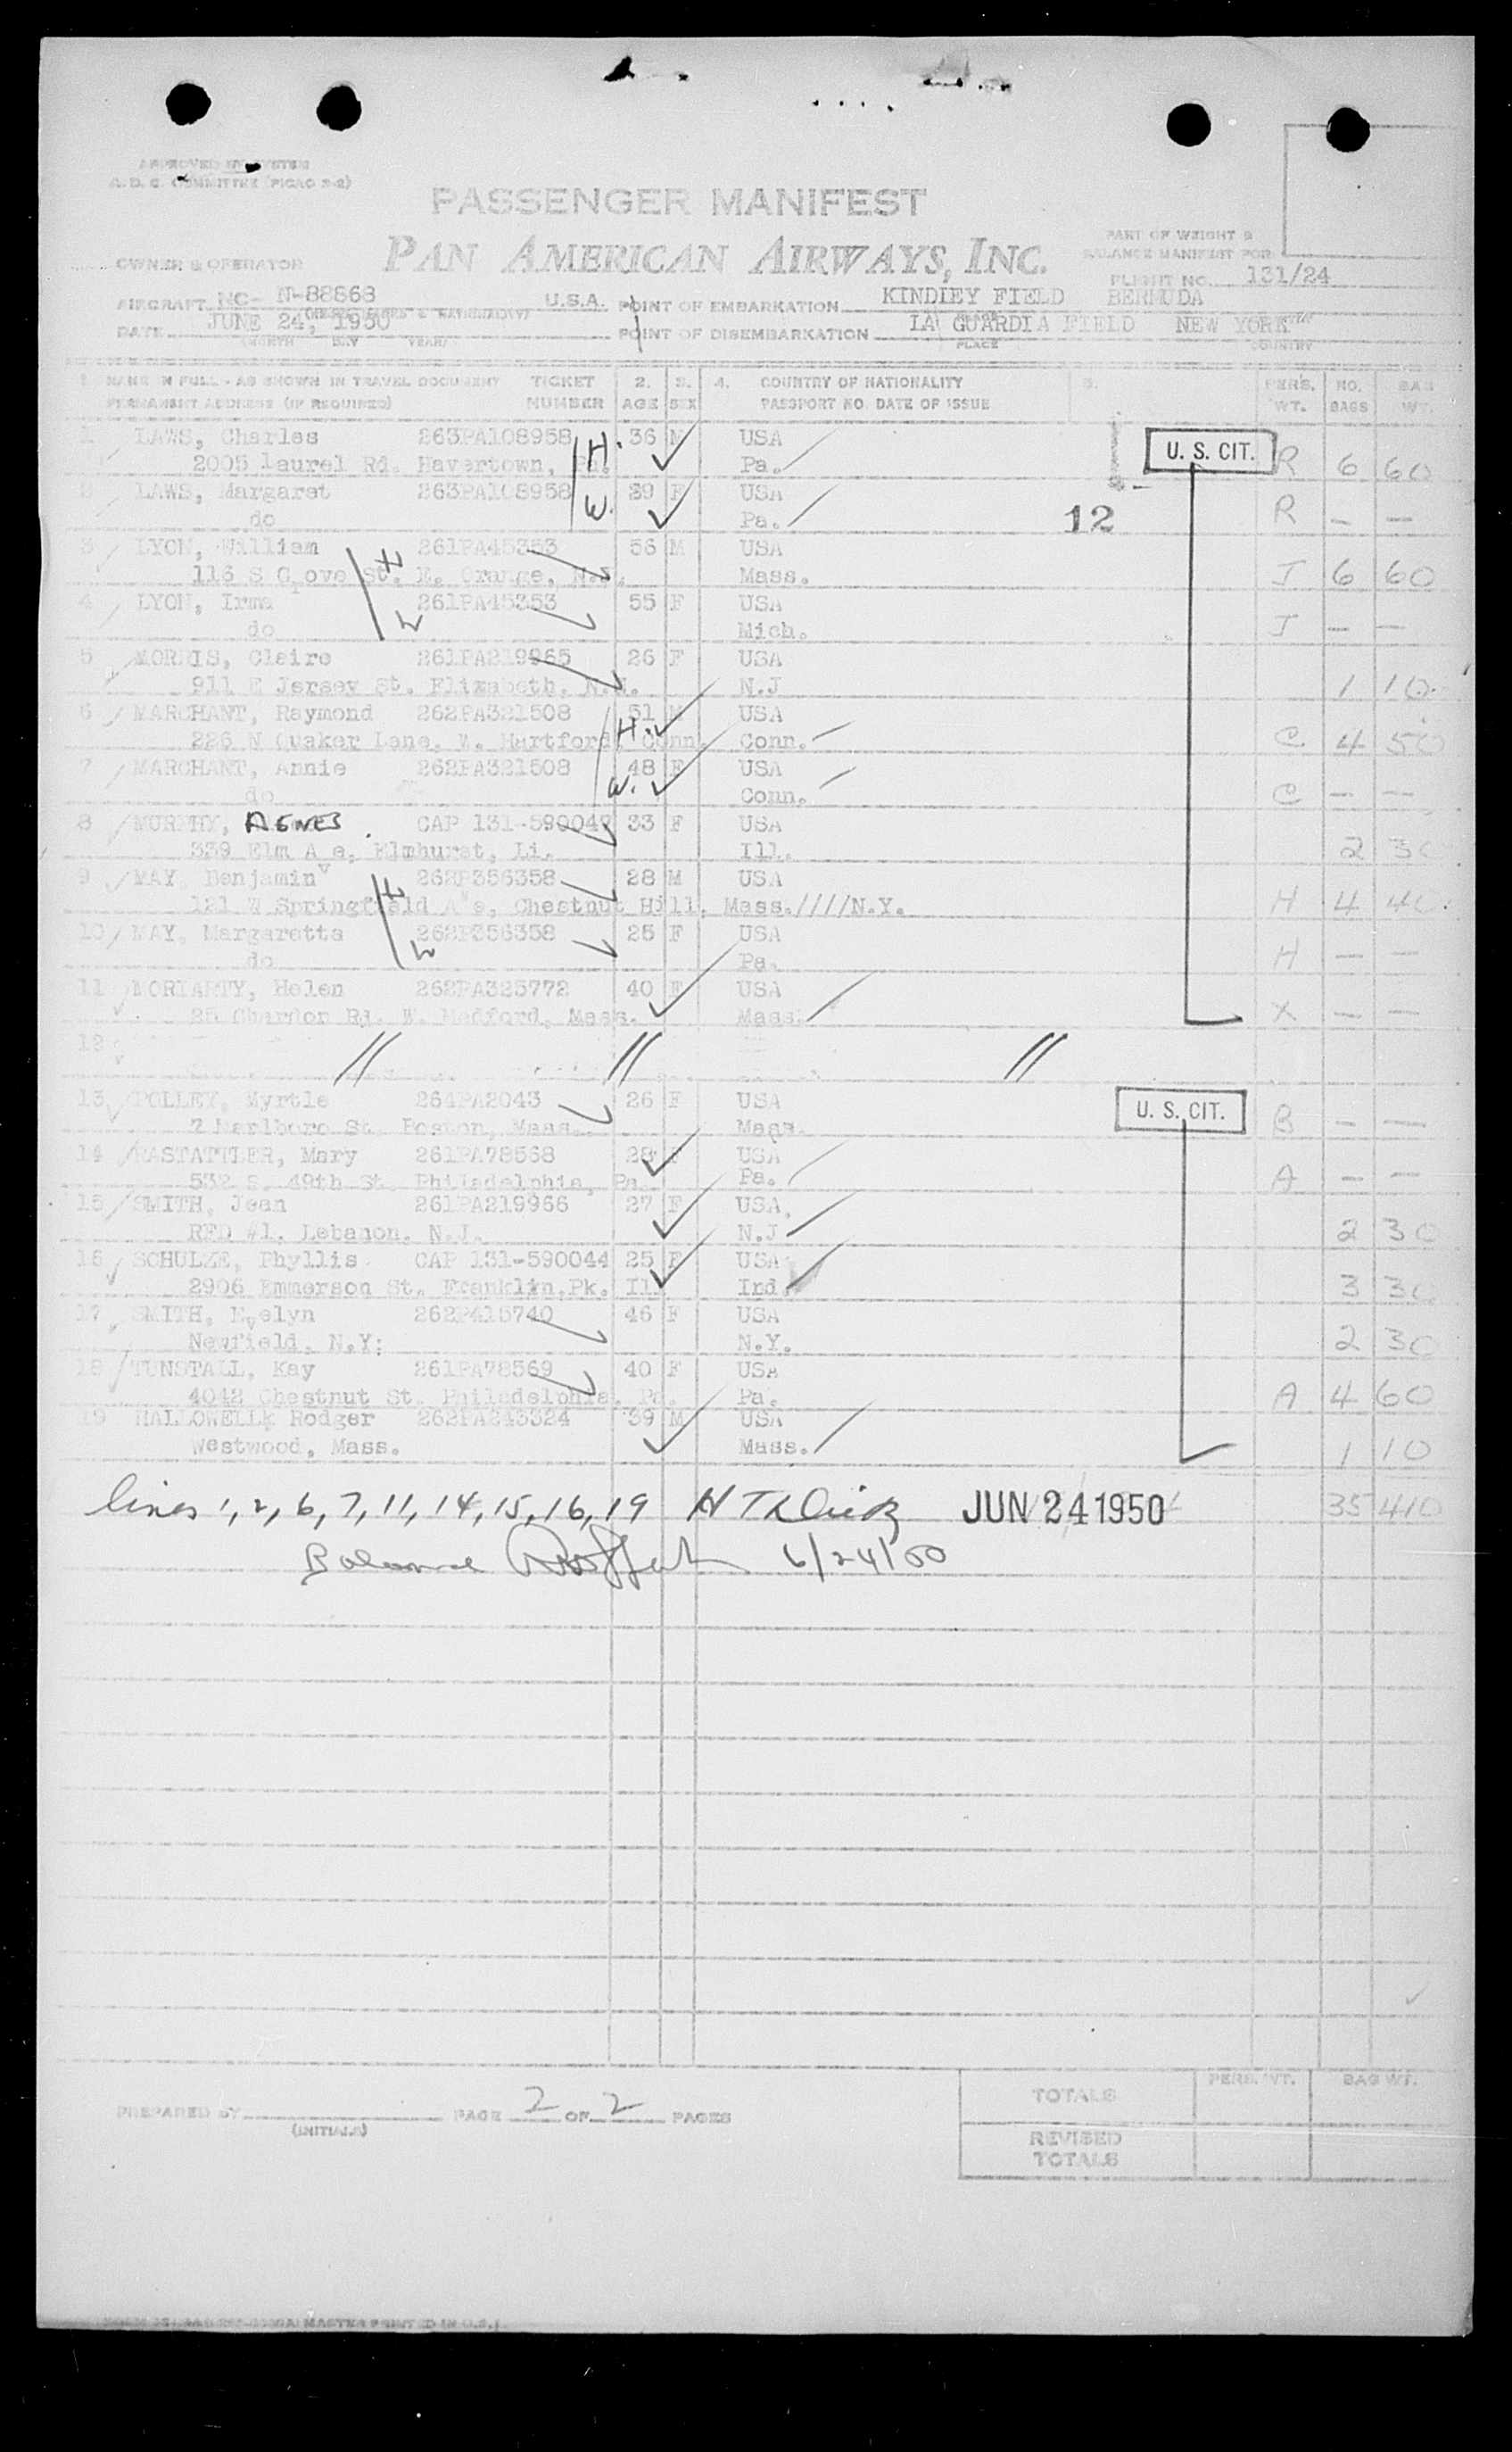 APPROVED BY SYSTEM
A. D. C. COMMITTEE (PICAO 2-2)
PASSENGER MANIFEST
PAN AMERICAN AIRWAYS, INC.
OWNER & OPERATOR
PART OF WEIGHT &
BALANCE MANIFEST FOR
FLIGHT NO. 131/24
AIRCRAFT NC- N-88868 U.S.A. POINT OF EMBARKATION KINDLEY FIELD BERMUDA
DATE JUNE 24, 1950 POINT OF DISEMBARKATION LA GUARDIA FIELD NEW YORK
(MONTH DAY YEAR) PLACE COUNTRY
1. NAME IN FULL - AS SHOWN IN TRAVEL DOCUMENT TICKET 2. 3. 4. COUNTRY OF NATIONALITY 5. PERS. NO. BAG
PERMANENT ADDRESS (IF REQUIRED) NUMBER AGE SEX PASSPORT NO. DATE OF ISSUE WT. BAGS WT.
1 LAWS, Charles 263PA108958 H. 36 M USA U. S. CIT.
2005 Laurel Rd. Havertown, Pa. Pa. R 6 60
2 LAWS, Margaret 263PA108958 W. 29 F USA
do Pa. 12 R — —
3 LYON, William 261PA45353 H 56 M USA
116 S Grove St. E. Orange, N.J. Mass. J 6 60
4 LYON, Irma 261PA45353 W 55 F USA
do Mich. J — —
5 MORRIS, Claire 261PA219965 26 F USA
911 E Jersey St. Elizabeth, N.J. N.J 1 10
6 MARCHANT, Raymond 262PA321508 H. 51 M USA
226 N Quaker Lane, W. Hartford, Conn. Conn. C 4 50
7 MARCHANT, Annie 262PA321508 W. 48 F USA
do Conn. C — —
8 MURPHY, AGNES CAP 131-590049 33 F USA
339 Elm Ave, Elmhurst, Li. Ill. 2 30
9 MAY, Benjamin 262P356358 H 28 M USA
121 W Springfield Ave, Chestnut Hill, Mass.////N.Y. H 4 40
10 MAY, Margaretta 262P356358 W 25 F USA
do Pa. H — —
11 MORIARTY, Helen 262PA325772 40 F USA
25 Chardon Rd. W. Medford, Mass. Mass. X — —
12 // // //
13 POLLEY, Myrtle 264PA2043 26 F USA U. S. CIT.
7 Marlboro St. Boston, Mass. Mass. B — —
14 RASTATTLER, Mary 261PA78568 28 F USA
532 S. 49th St. Philadelphia, Pa. Pa. A — —
15 SMITH, Jean 261PA219966 27 F USA.
RFD #1, Lebanon, N.J. N.J 2 30
16 SCHULZE, Phyllis CAP 131-590044 25 F USA
2906 Emmerson St. Franklin,Pk. Il. Ind. 3 30
17 SMITH, Evelyn 262P415740 46 F USA
Newfield, N.Y: N.Y. 2 30
18 TUNSTALL, Kay 261PA78569 40 F USA
4042 Chestnut St. Philadelphia, Pa. Pa. A 4 60
19 HALLOWELL, Rodger 262PA243324 39 M USA
Westwood, Mass. Mass. 1 10
lines 1, 2, 6, 7, 11, 14, 15, 16, 19 JUN 24 1950 35 410
Balance 6/24/50
TOTALS PERS. WT. BAG WT.
PREPARED BY PAGE 2 OF 2 PAGES
(INITIALS)
REVISED
TOTALS